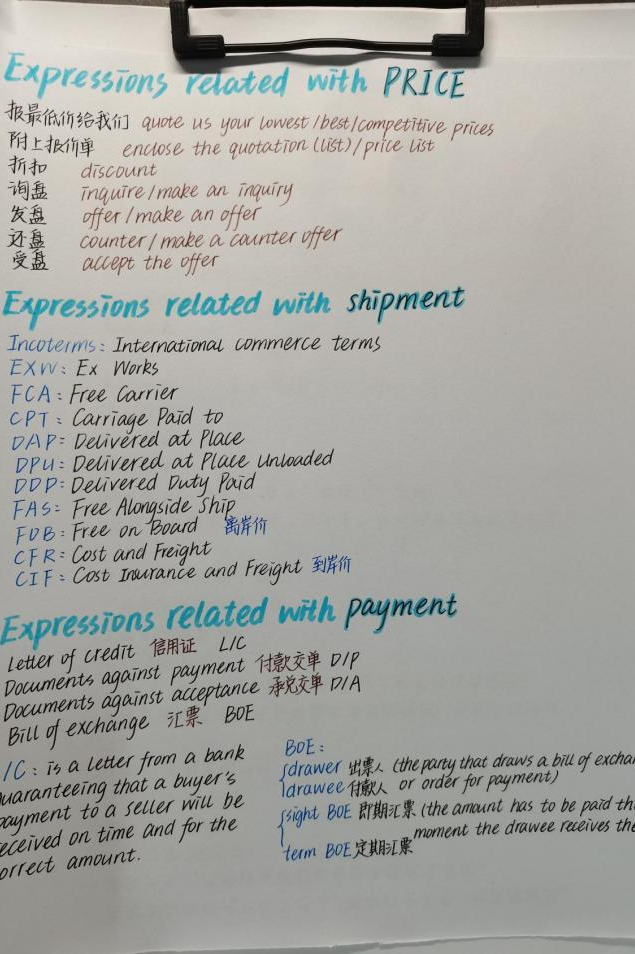 Expressions related with PRICE
报最低价给我们 quote us your lowest/best/competitive prices
附上报价单 enclose the quotation (list)/price list
折扣 discount
询盘 inquire/make an inquiry
发盘 offer/make an offer
还盘 counter/make a counter offer
受盘 accept the offer
Expressions related with shipment
Incoterms: International commerce terms
EXW: Ex Works
FCA: Free Carrier
CPT: Carriage Paid to
DAP: Delivered at Place
DPU: Delivered at Place Unloaded
DDP: Delivered Duty Paid
FAS: Free Alongside Ship
FOB: Free on Board 离岸价
CFR: Cost and Freight
CIF: Cost Insurance and Freight 到岸价
Expressions related with payment
Letter of credit 信用证 L/C
Documents against payment 付款交单 D/P
Documents against acceptance 承兑交单 D/A
Bill of exchange 汇票 BOE
/C: is a letter from a bank
uaranteeing that a buyer's
payment to a seller will be
eceived on time and for the
orrect amount.
BOE:
drawer 出票人 (the party that draws a bill of excha
drawee 付款人 or order for payment)
sight BOE 即期汇票 (the amount has to be paid th
moment the drawee receives the
term BOE 定期汇票